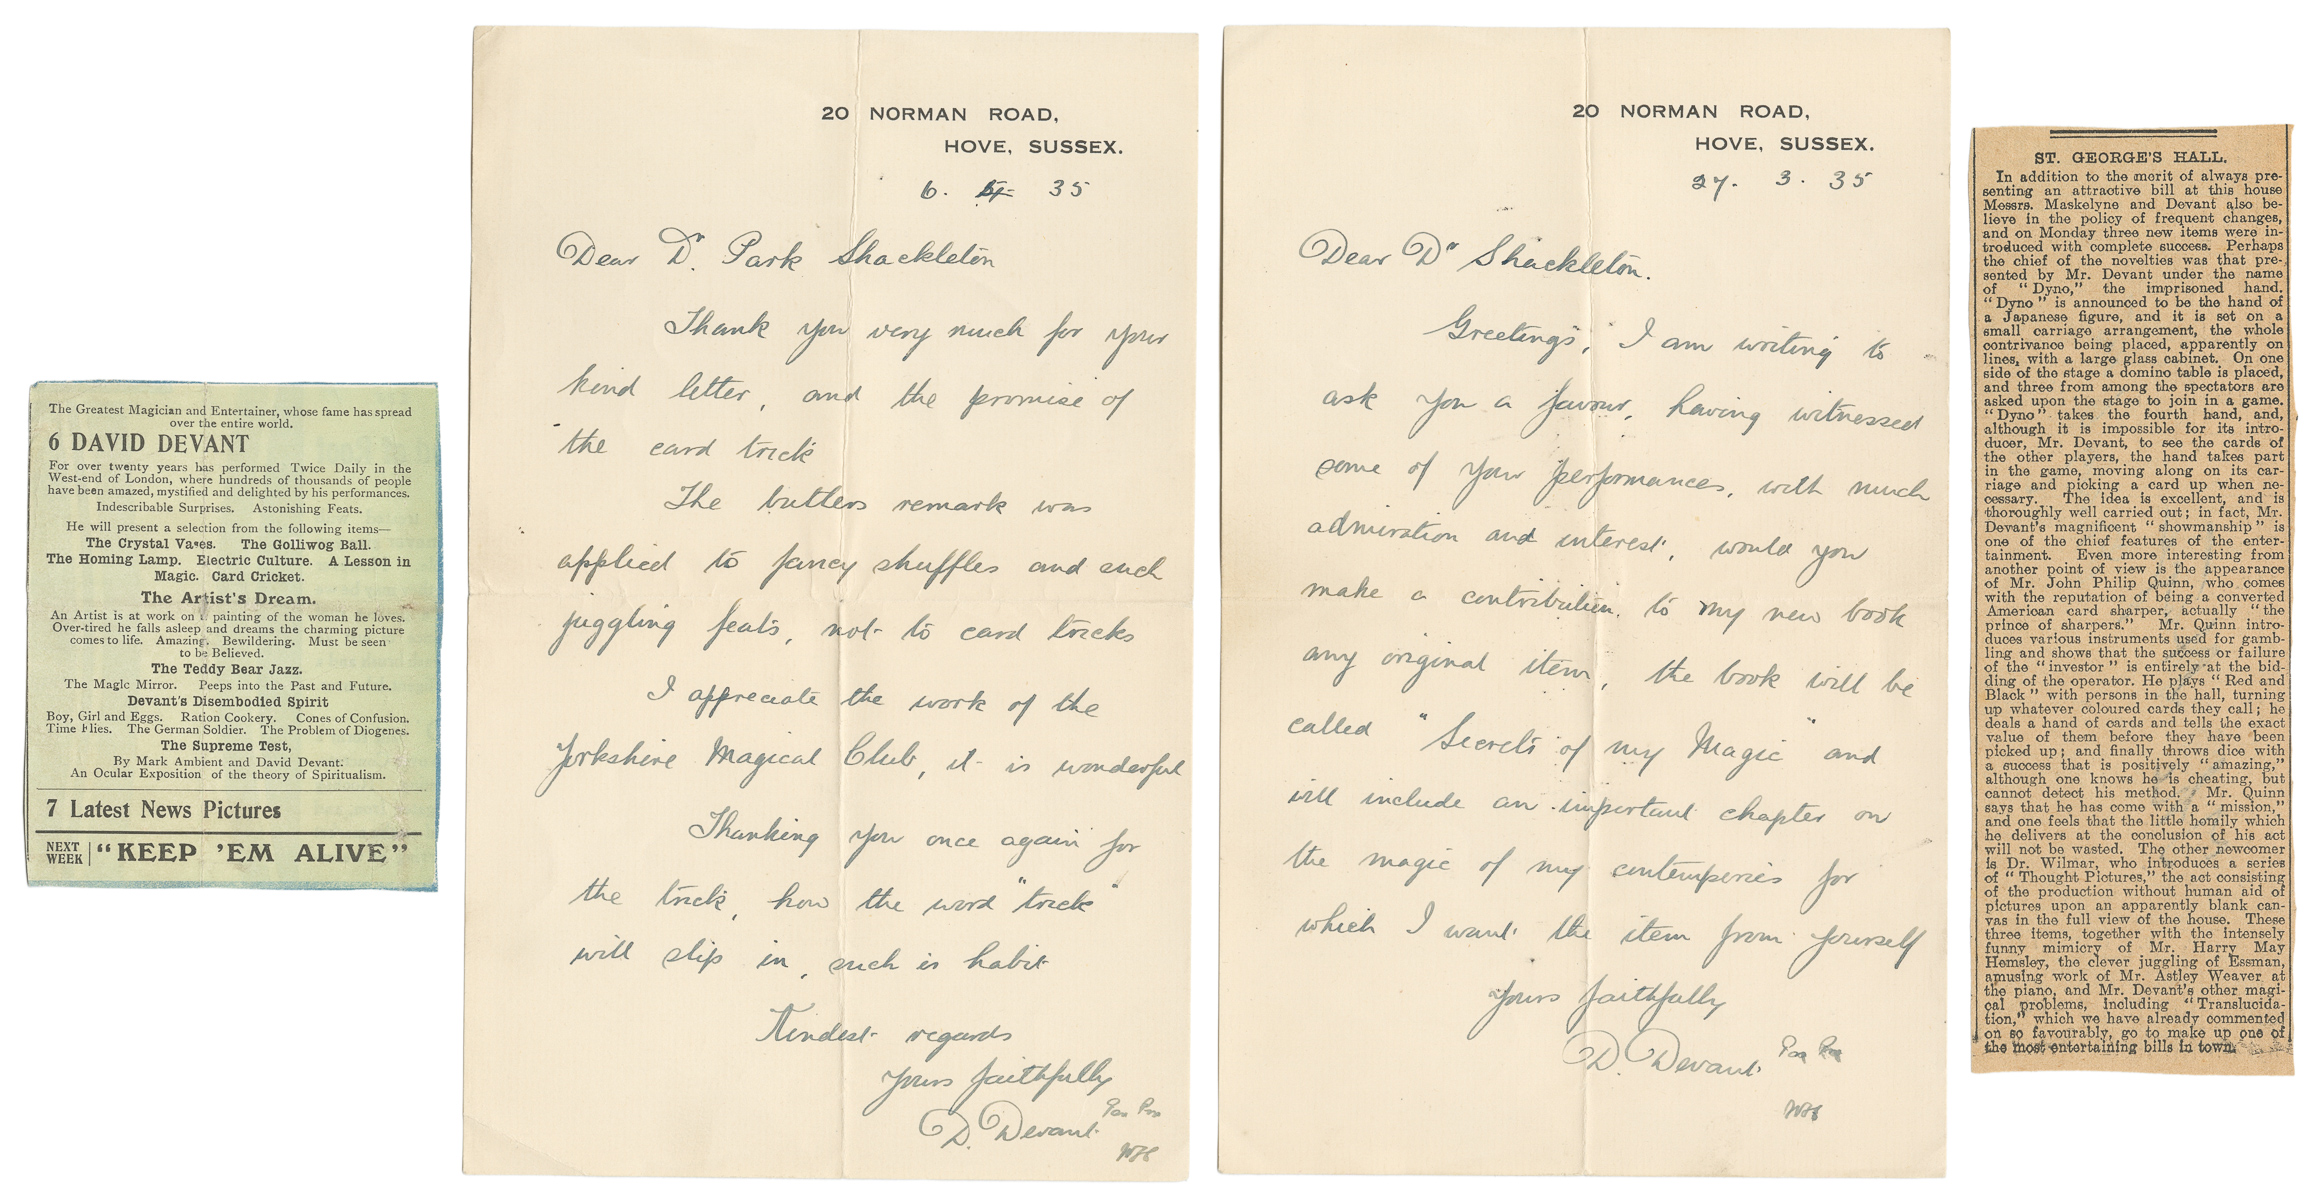 The Greatest Magician and Entertainer, whose fame has spread
over the entire world.
6 DAVID DEVANT
For over twenty years has performed Twice Daily in the
West-end of London, where hundreds of thousands of people
have been amazed, mystified and delighted by his performances.
Indescribable Surprises. Astonishing Feats.
He will present a selection from the following items—
The Crystal Vases. The Golliwog Ball.
The Homing Lamp. Electric Culture. A Lesson in
Magic. Card Cricket.
The Artist's Dream.
An Artist is at work on painting of the woman he loves.
Over-tired he falls asleep and dreams the charming picture
comes to life. Amazing. Bewildering. Must be seen
to be Believed.
The Teddy Bear Jazz.
The Magic Mirror. Peeps into the Past and Future.
Devant's Disembodied Spirit
Boy, Girl and Eggs. Ration Cookery. Cones of Confusion.
Time Flies. The German Soldier. The Problem of Diogenes.
The Supreme Test,
By Mark Ambient and David Devant.
An Ocular Exposition of the theory of Spiritualism.
7 Latest News Pictures
NEXT WEEK "KEEP 'EM ALIVE"
20 NORMAN ROAD,
HOVE, SUSSEX.
6. 35
Dear Dr. Park Shackleton
Thank you very much for your
kind letter, and the promise of
the card trick
The butlers remark was
applied to fancy shuffles and such
juggling feats, not to card tricks
I appreciate the work of the
Yorkshire Magical Club, it is wonderful
Thanking you once again for
the trick, how the word "trick"
will slip in, such is habit
Kindest regards
Yours faithfully
D. Devant
20 NORMAN ROAD,
HOVE, SUSSEX.
27. 3. 35
Dear Dr Shackleton.
Greetings, I am writing to
ask you a favour, having witnessed
some of your performances, with much
admiration and interest, would you
make a contribution to my new book
any original item, the book will be
called "Secrets of my Magic" and
will include an important chapter on
the magic of my contemperies for
which I want the item from yourself
Yours faithfully
D. Devant
ST. GEORGE'S HALL.
In addition to the merit of always pre-
senting an attractive bill at this house
Messrs. Maskelyne and Devant also be-
lieve in the policy of frequent changes,
and on Monday three new items were in-
troduced with complete success. Perhaps
the chief of the novelties was that pre-
sented by Mr. Devant under the name
of "Dyno," the imprisoned hand.
"Dyno" is announced to be the hand of
a Japanese figure, and it is set on a
small carriage arrangement, the whole
contrivance being placed, apparently on
lines, with a large glass cabinet. On one
side of the stage a domino table is placed,
and three from among the spectators are
asked upon the stage to join in a game.
"Dyno" takes the fourth hand, and,
although it is impossible for its intro-
ducer, Mr. Devant, to see the cards of
the other players, the hand takes part
in the game, moving along on its car-
riage and picking a card up when ne-
cessary. The idea is excellent, and is
thoroughly well carried out; in fact, Mr.
Devant's magnificent "showmanship" is
one of the chief features of the enter-
tainment. Even more interesting from
another point of view is the appearance
of Mr. John Philip Quinn, who comes
with the reputation of being a converted
American card sharper, actually "the
prince of sharpers." Mr. Quinn intro-
duces various instruments used for gamb-
ling and shows that the success or failure
of the "investor" is entirely at the bid-
ding of the operator. He plays "Red and
Black" with persons in the hall, turning
up whatever coloured cards they call; he
deals a hand of cards and tells the exact
value of them before they have been
picked up; and finally throws dice with
a success that is positively "amazing,"
although one knows he is cheating, but
cannot detect his method. Mr. Quinn
says that he has come with a "mission,"
and one feels that the little homily which
he delivers at the conclusion of his act
will not be wasted. The other newcomer
is Dr. Wilmar, who introduces a series
of "Thought Pictures," the act consisting
of the production without human aid of
pictures upon an apparently blank can-
vas in the full view of the house. These
three items, together with the intensely
funny mimicry of Mr. Harry May
Hemsley, the clever juggling of Essman,
amusing work of Mr. Astley Weaver at
the piano, and Mr. Devant's other magi-
cal problems, including "Translucida-
tion," which we have already commented
on so favourably, go to make up one of
the most entertaining bills in town.